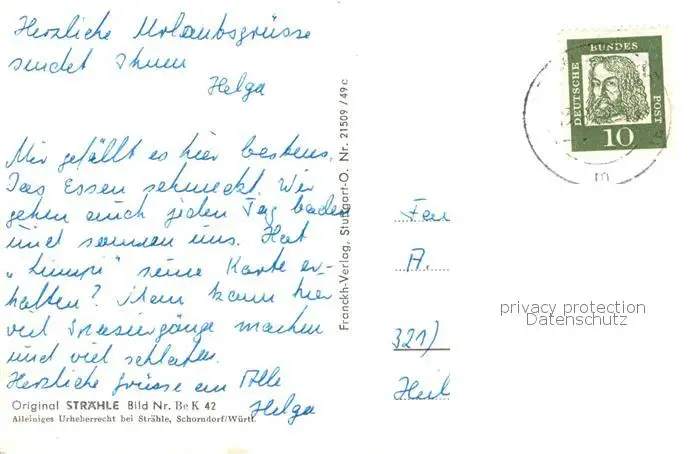 Herzliche Urlaubsgrüsse
sendet Ihnen
Helga
Mir gefällt es hier bestens.
Das Essen schmeckt. Wir
gehen auch jeden Tag baden
und sonnen uns. Hat
„Limpi" seine Karte er-
halten? Man kann hier
viel Spaziergänge machen
und viel schlafen.
Herzliche Grüsse an Alle
Helga
Original STRÄHLE Bild Nr. Be K 42
Alleiniges Urheberrecht bei Strähle, Schorndorf/Württ.
Franckh-Verlag, Stuttgart-O. Nr. 21509 / 49 c
DEUTSCHE BUNDES POST
10
m
A.
321)
Heil
privacy protection
Datenschutz